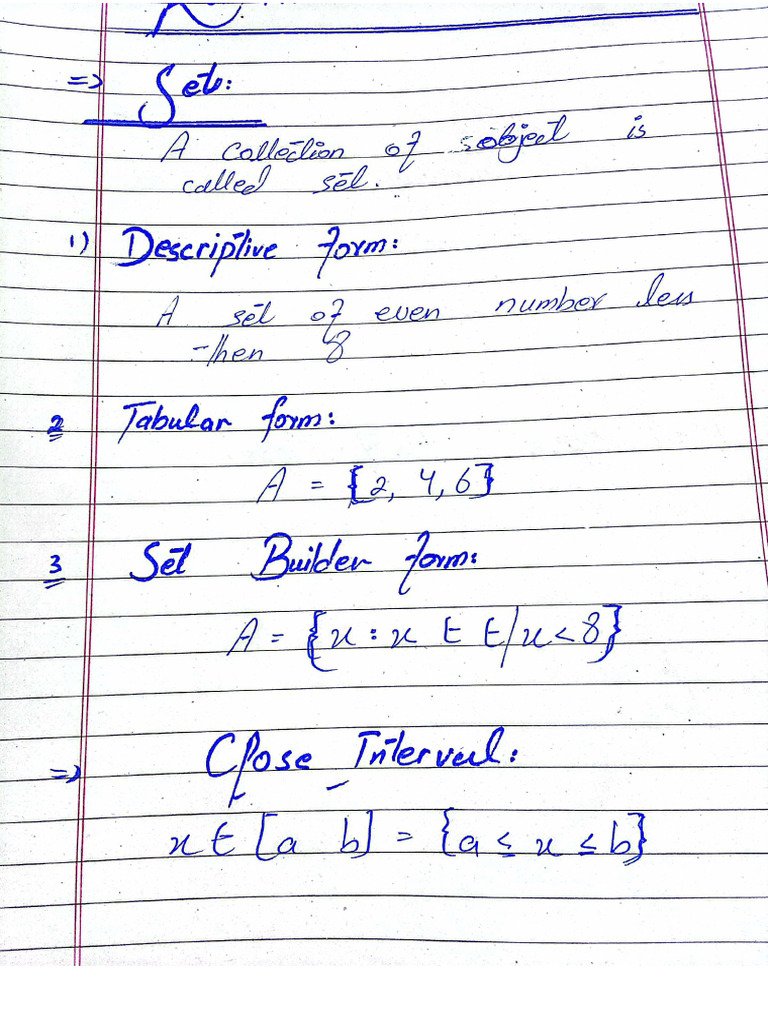 => Set:
A collection of object is
called set.
1) Descriptive form:
A set of even number less
then 8
2 Tabular form:
A = {2, 4, 6}
3 Set Builder form:
A = {x : x ∈ E/x < 8}
=> Close Interval:
x ∈ [a b] = {a ≤ x ≤ b}